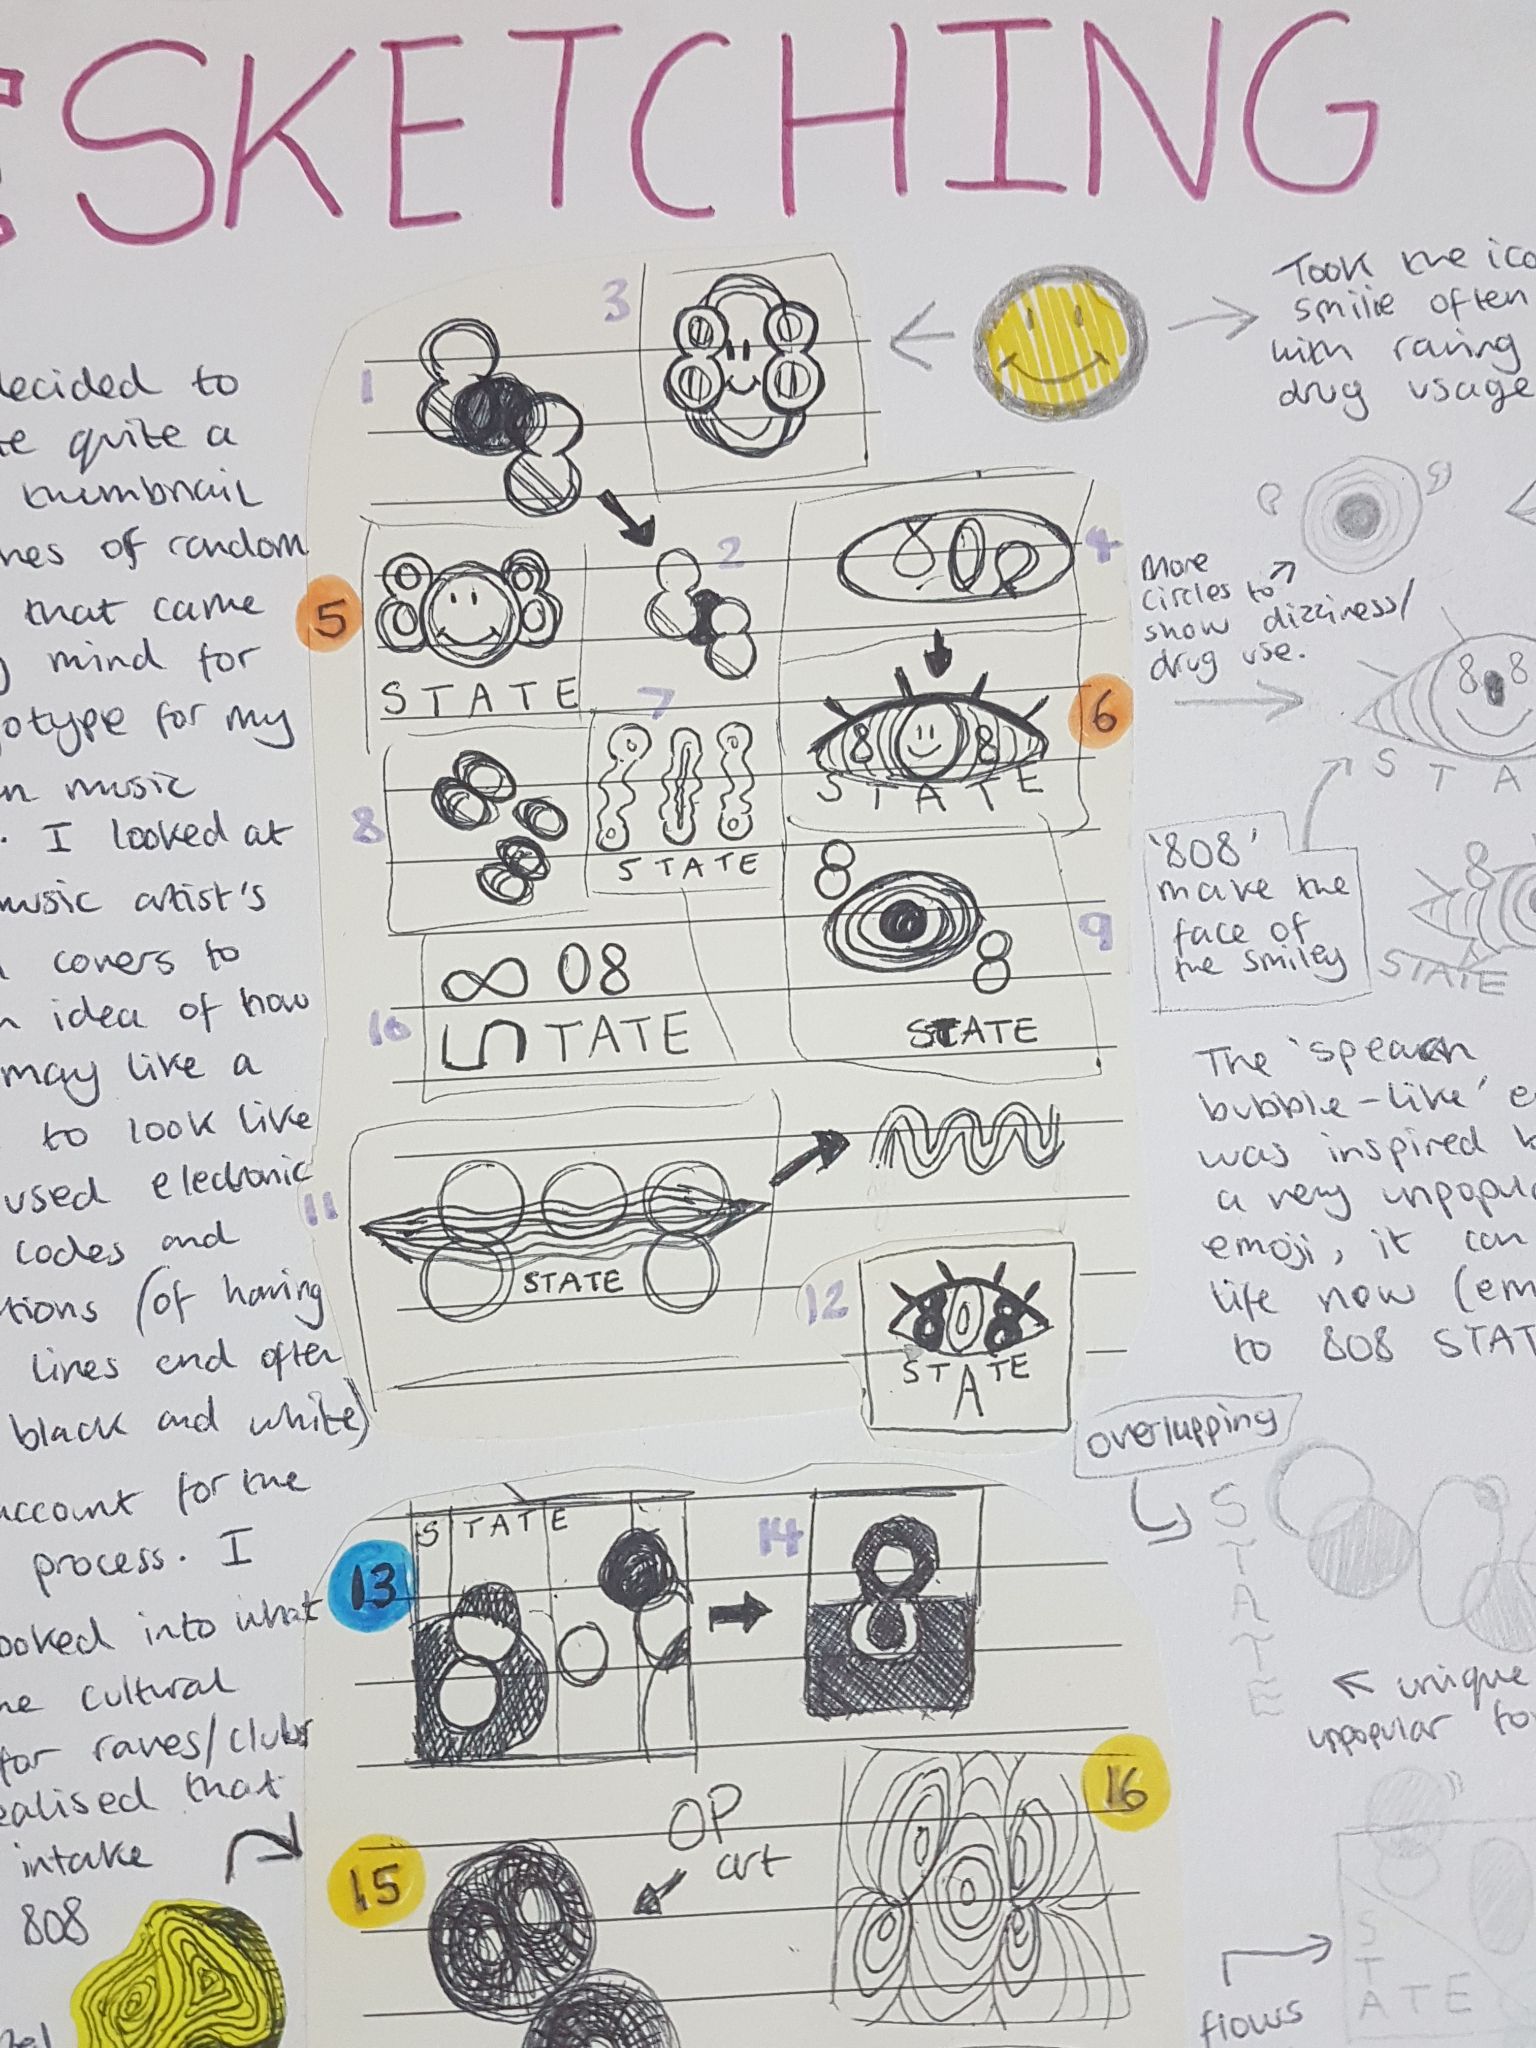 SKETCHING
decided to
quite a
thumbnail
of random
that came
mind for
for my
music
. I looked at
music artist's
covers to
idea of how
may like a
to look like
used electronic
codes and
(of having
lines and often
black and white)
account for the
process. I
looked into what
cultural
for raves/clubs
realised that
intake
808
3
1
5
STATE
2
808
4
7
STATE
8
8 8
STATE
6
8
8
STATE
9
808
STATE
10
STATE
11
808
STATE
12
STATE
13
14
OP
art
15
16
Took the
smilie often
with raving
drug usage
More
circles to
show dizziness/
drug use.
8 8
S T A
'808'
make the
face of
the smiley
8
STATE
The 'speech
bubble-like'
was inspired
a very unpopular
emoji, it can
life now
to 808 STATE
overlapping
STATE
unique
unpopular
STATE
flows